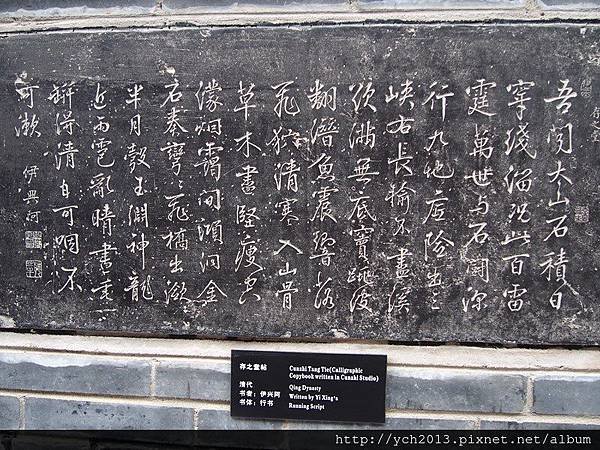 存之堂
吾聞太山石積日
穿綫溜况此百雷
霆萬世与石鬪深
行九地底險出三
峽右長輸不盡溪
欲滿無底竇跳波
翻潛魚震響落
飛狖清寒入山骨
草木盡堅瘦空
濛烟靄間澒洞金
石奏彎〻飛橋出瀲
半月彀玉淵神龍
近雨雹亂晴晝垂
缾得清甘可咽不
可漱 伊興阿
存之堂帖
Cunzhi Tang Tie(Calligraphic
Copybook written in Cunzhi Studio)
清代
Qing Dynasty
书者：伊兴阿
Written by Yi Xing'a
书体：行书
Running Script
http://ych2013.pixnet.net/album